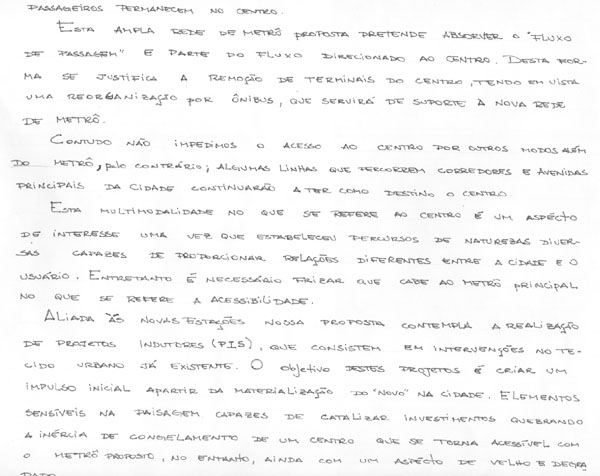 PASSAGEIROS PERMANECEM NO CENTRO.
ESTA AMPLA REDE DE METRÔ PROPOSTA PRETENDE ABSORVER O "FLUXO
DE PASSAGEM" E PARTE DO FLUXO DIRECIONADO AO CENTRO. DESTA FOR-
MA SE JUSTIFICA A REMOÇÃO DE TERMINAIS DO CENTRO, TENDO EM VISTA
UMA REORGANIZAÇÃO POR ÔNIBUS, QUE SERVIRÁ DE SUPORTE À NOVA REDE
DE METRÔ.
CONTUDO NÃO IMPEDIMOS O ACESSO AO CENTRO POR OUTROS MODOS ALÉM
DO METRÔ, pelo CONTRÁRIO; ALGUMAS LINHAS QUE PERCORREM CORREDORES E AVENIDAS
PRINCIPAIS DA CIDADE CONTINUARÃO A TER COMO DESTINO O CENTRO.
ESTA MULTIMODALIDADE NO QUE SE REFERE AO CENTRO É UM ASPÉCTO
DE INTERESSE UMA VEZ QUE ESTABELECEU PERCURSOS DE NATUREZAS DIVER-
SAS CAPAZES DE PROPORCIONAR RELAÇÕES DIFERENTES ENTRE A CIDADE E O
USUÁRIO. ENTRETANTO É NECESSÁRIO FRIZAR QUE CABE AO METRÔ PRINCIPAL
NO QUE SE REFERE A ACESSIBILIDADE.
ALIADA ÀS NOVAS ESTAÇÕES NOSSA PROPOSTA CONTEMPLA A REALIZAÇÃO
DE PROJETOS INDUTORES (PIS), QUE CONSISTEM EM INTERVENÇÕES NO TE-
CIDO URBANO JÁ EXISTENTE. O objetivo DESTES PROJETOS É CRIAR UM
IMPULSO INICIAL APARTIR DA MATERIALIZAÇÃO DO "NOVO" NA CIDADE. ELEMENTOS
SENSÍVEIS NA PAISAGEM, CAPAZES DE CATALIZAR INVESTIMENTOS QUEBRANDO
A INÉRCIA DE CONGELAMENTO DE UM CENTRO QUE SE TORNA ACESSÍVEL COM
O METRÔ PROPOSTO, NO ENTANTO, AINDA COM UM ASPÉCTO DE VELHO E DEGRA
DADO.